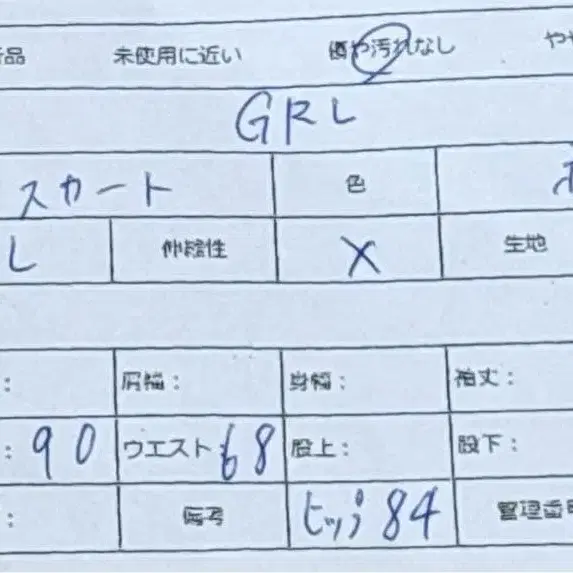 品 未使用に近い 傷や汚れなし やや
GRL
スカート 色
L 伸縮性 × 生地
: 肩幅: 身幅: 袖丈:
: 90 ウエスト 68 股上: 股下:
: 備考 ヒップ 84 管理番号